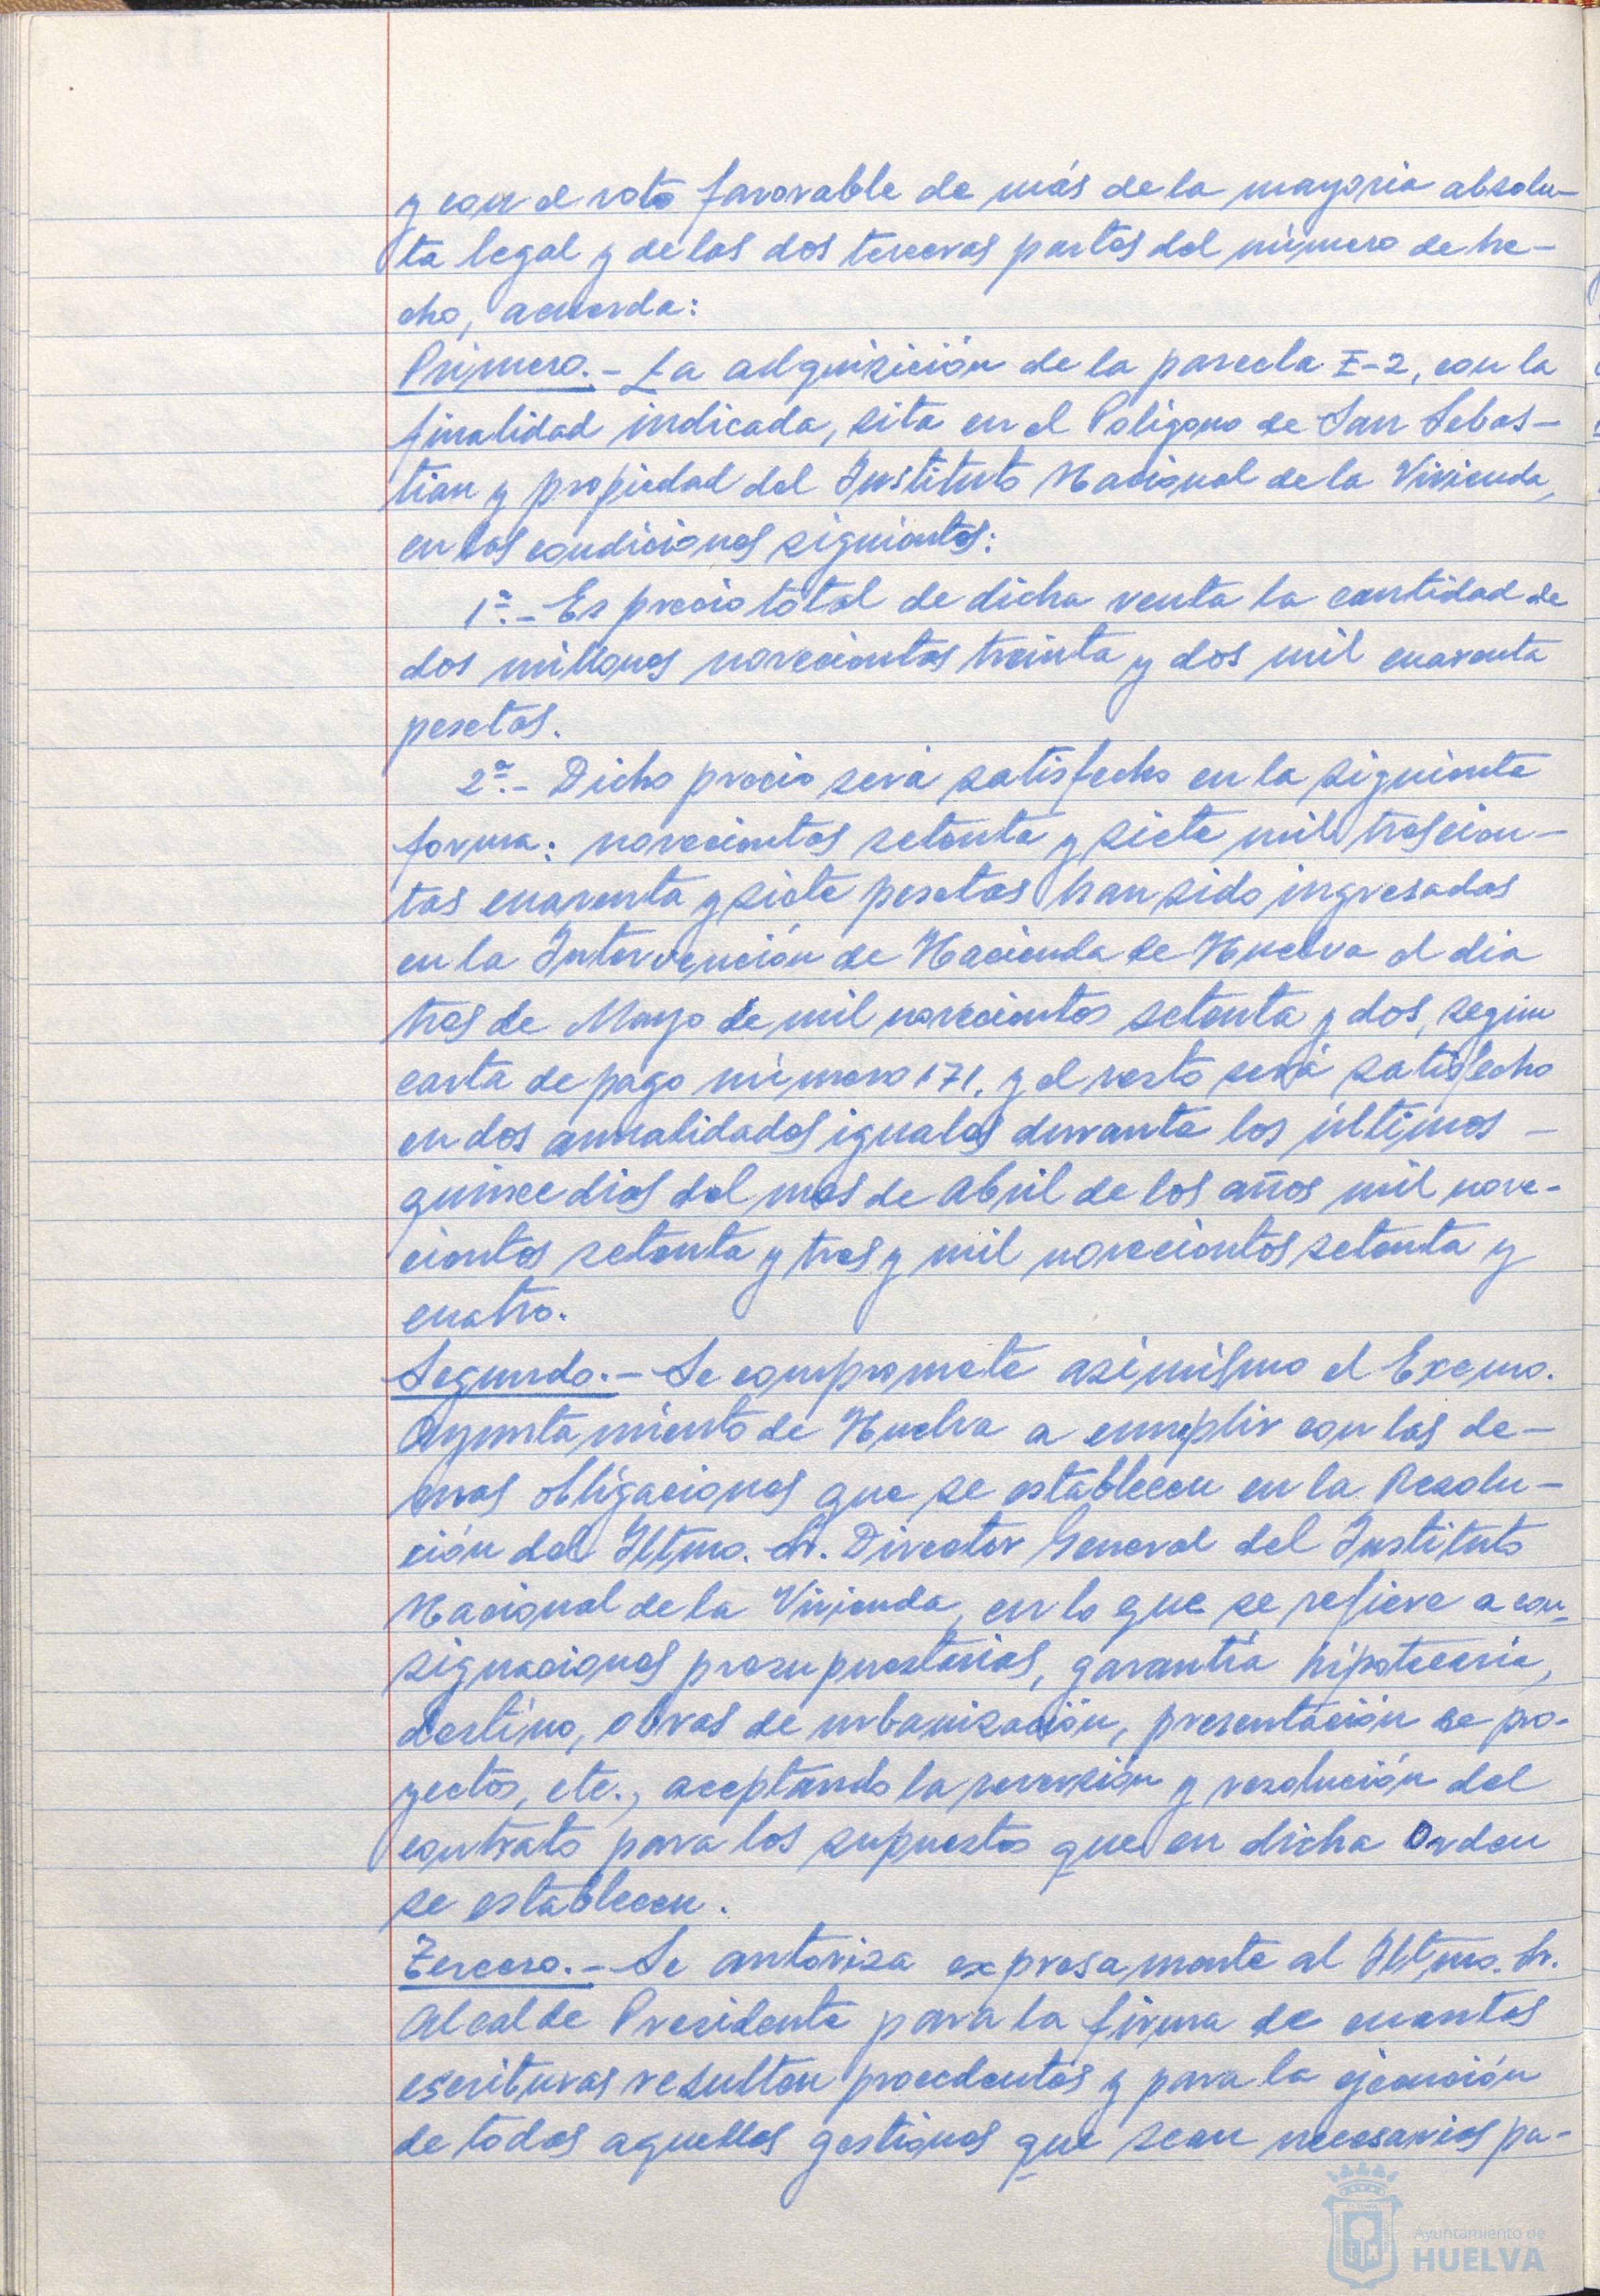 y con el voto favorable de más de la mayoria absolu-
ta legal y de las dos terceras partes del número de he-
cho, acuerda:
Primero.- La adquisición de la parcela E-2, con la
finalidad indicada, sita en el Poligono de San Sebas-
tian y propiedad del Instituto Nacional de la Vivienda,
en las condiciones siguientes:
1ª.- Es precio total de dicha venta la cantidad de
dos millones novecientas treinta y dos mil cuarenta
pesetas.
2ª.- Dicho precio será satisfecho en la siguiente
forma: novecientas setenta y siete mil trescien-
tas cuarenta y siete pesetas han sido ingresadas
en la Intervención de Hacienda de Huelva el dia
tres de Mayo de mil novecientos setenta y dos, segun
carta de pago número 171, y el resto será satisfecho
en dos anualidades iguales durante los últimos -
quince dias del mes de Abril de los años mil nove-
cientos setenta y tres y mil novecientos setenta y
cuatro.
Segundo.- Se compromete asimismo el Excmo.
Ayuntamiento de Huelva a cumplir con las de-
mas obligaciones que se establecen en la Resolu-
ción del Iltmo. Sr. Director General del Instituto
Nacional de la Vivienda, en lo que se refiere a con-
signaciones presupuestarias, garantía hipotecaria,
destino, obras de urbanización, presentación de pro-
yectos, etc., aceptando la reversión y resolución del
contrato para los supuestos que en dicha Orden
se establecen.
Tercero.- Se autoriza expresamente al Iltmo. Sr.
Alcalde Presidente para la firma de cuantas
escrituras resulten procedentes y para la ejecución
de todas aquellas gestiones que sean necesarias pa-
Ayuntamiento de
HUELVA